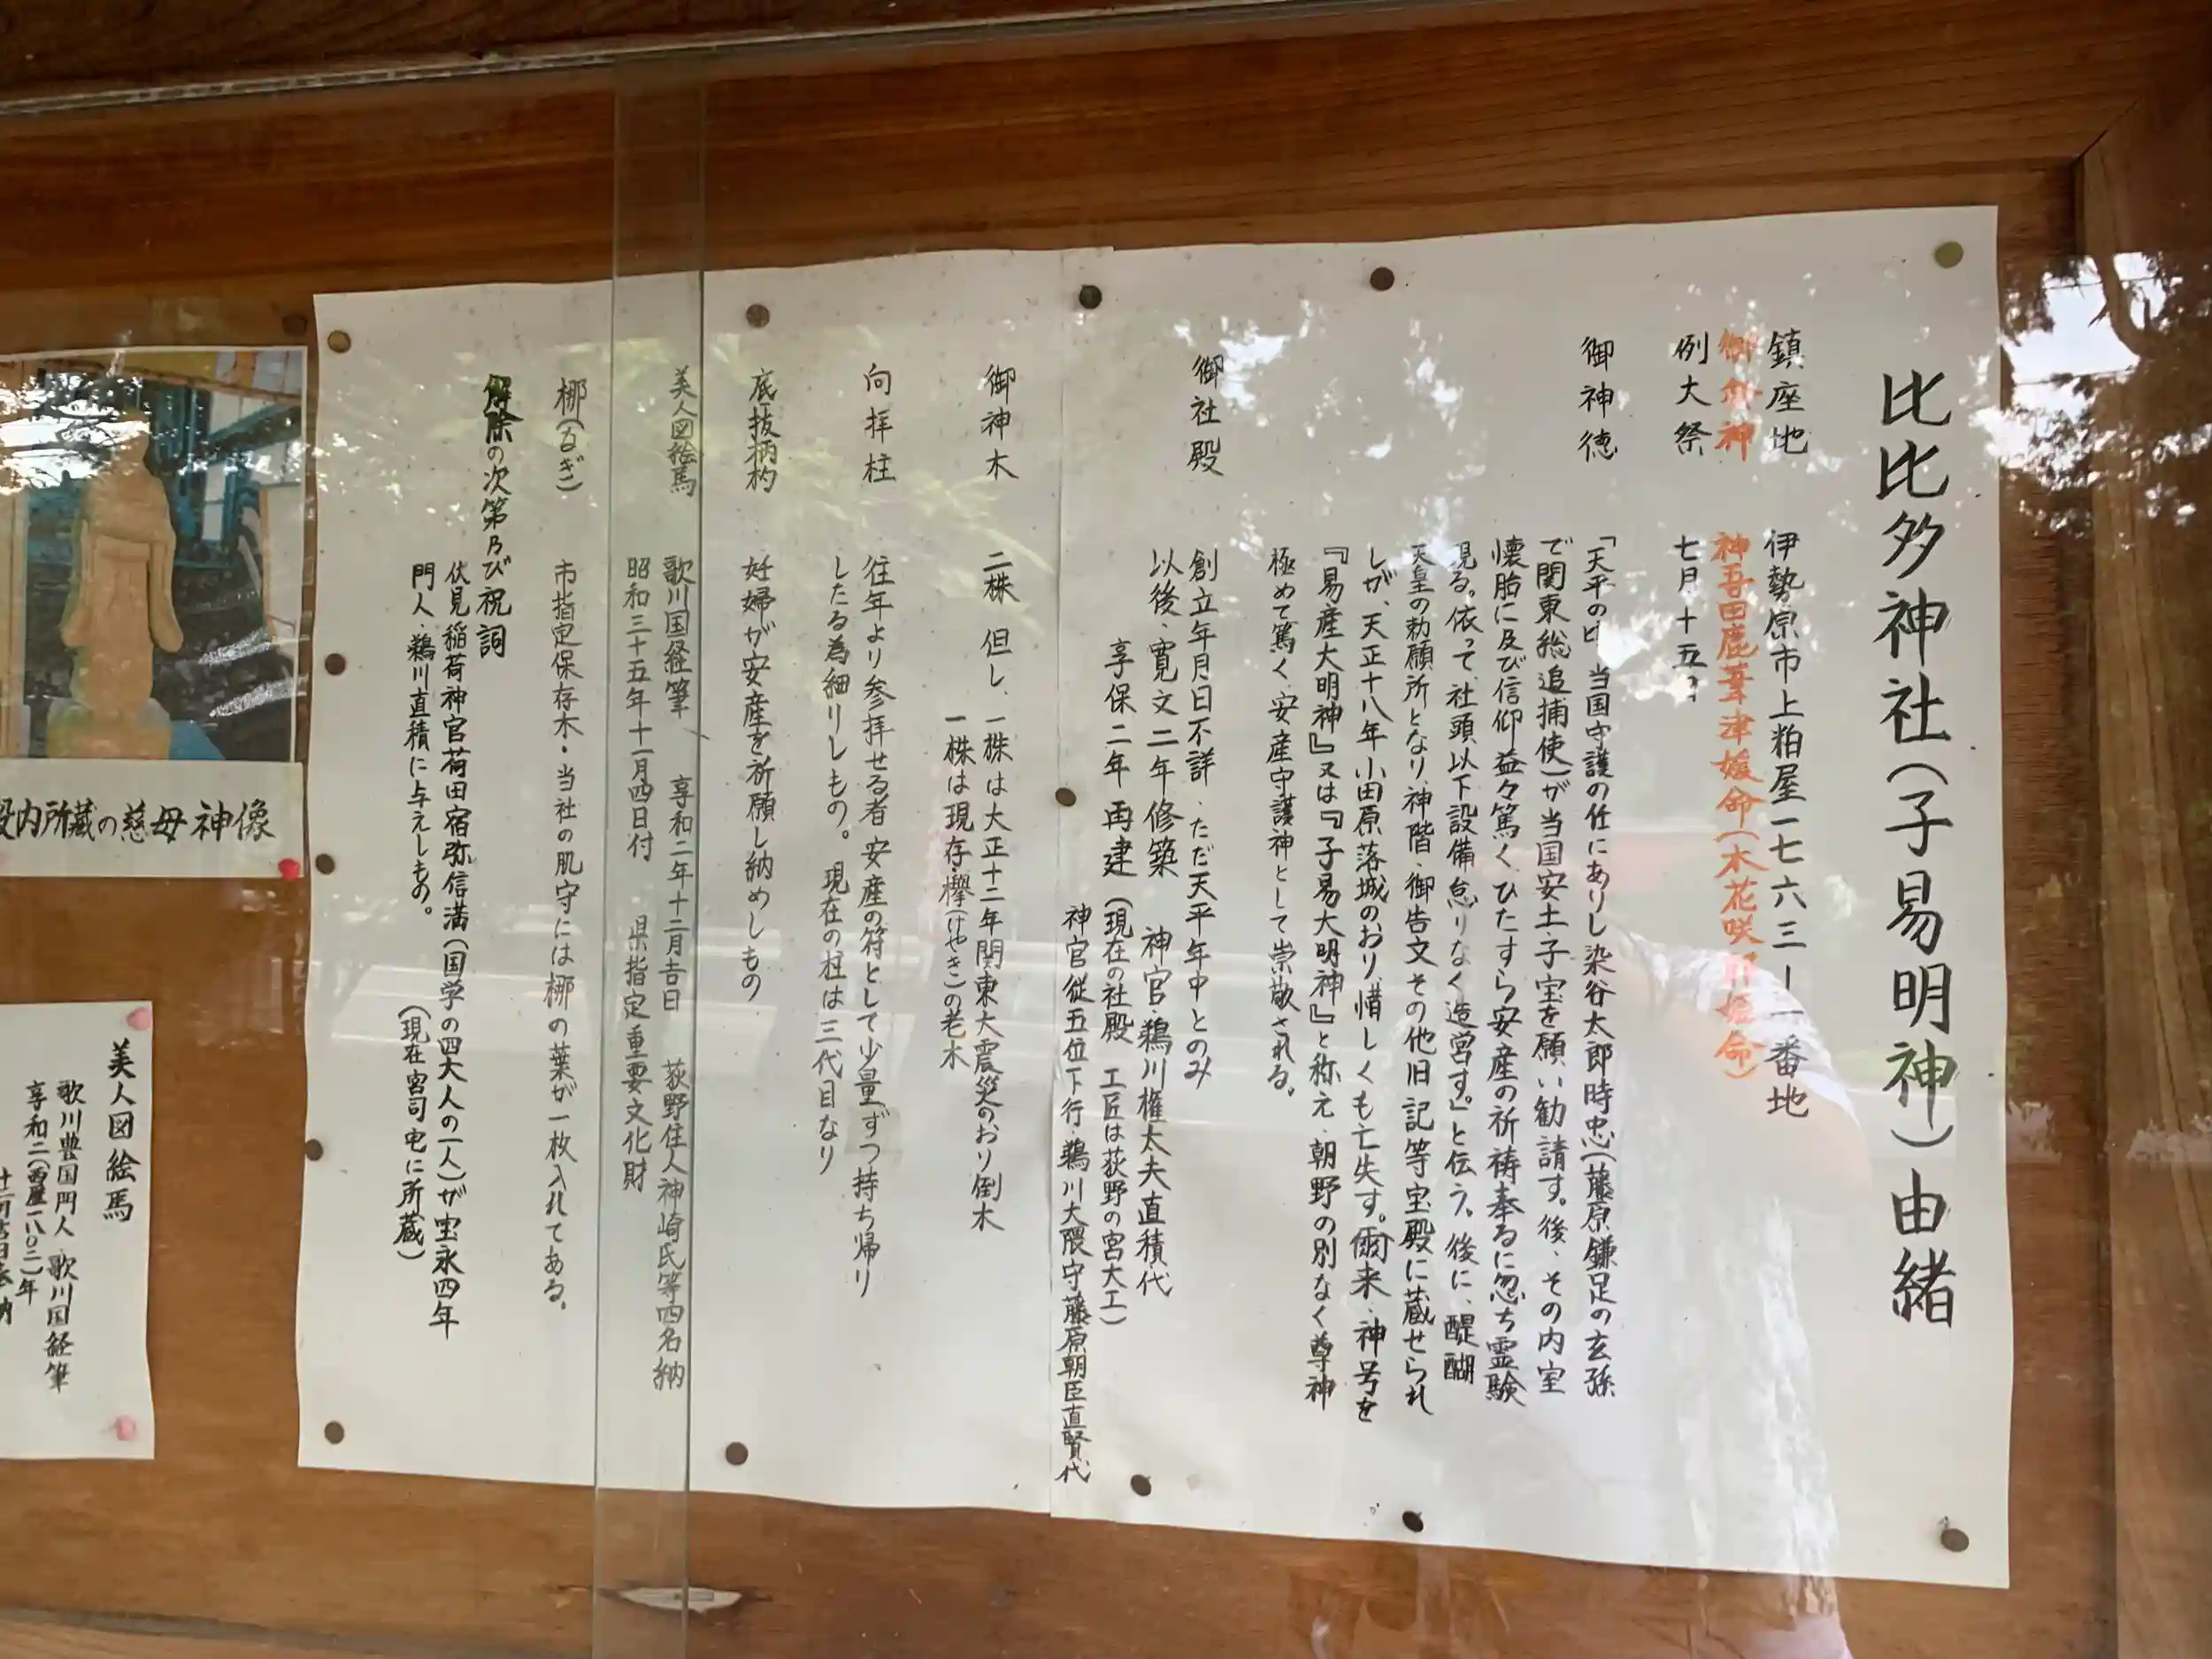 比比多神社(子易明神)由緒
鎮座地 伊勢原市上粕屋一七六三ー一番地
御祭神 神吾田鹿葦津媛命(木花咲耶姫命)
例大祭 七月十五日
御神徳 「天平の頃 当国守護の任にありし染谷太郎時忠(藤原鎌足の玄孫
で関東総追捕使)が当国安土・子宝を願い勧請す。後、その内室
懐胎に及び信仰益々篤く、ひたすら安産の祈祷奉るに忽ち霊験
見る。依って、社頭以下設備怠りなく造営す。」と伝う。後に、醍醐
天皇の勅願所となり、神階、御告文その他旧記等宝殿に蔵せられ
しが、天正十八年小田原落城のおり、惜しくも亡失す。爾来、神号を
『易産大明神』又は『子易大明神』と称え、朝野の別なく尊神
極めて篤く、安産守護神として崇敬される。
御社殿 創立年月日不詳、ただ天平年中とのみ
以後、寛文二年修築 神官・鵜川権太夫直積代
享保二年再建(現在の社殿 工匠は荻野の宮大工)
神官従五位下行・鵜川大隈守藤原朝臣直賢代
御神木 二株 但し、一株は大正十二年関東大震災のおり倒木
一株は現存・欅(けやき)の老木
向拝柱 往年より参拝せる者 安産の符として少量ずつ持ち帰り
したる為細りしもの。現在の柱は三代目なり
底抜柄杓 妊婦が安産を祈願し納めしもの
美人図絵馬 歌川国経筆 享和二年十二月吉日 荻野住人神崎氏等四名納
昭和三十五年十一月四日付 県指定重要文化財
梛(なぎ) 市指定保存木・当社の肌守には梛の葉が一枚入れてある。
解除の次第及び祝詞
伏見稲荷神官荷田宿弥信満(国学の四大人の一人)が宝永四年
門人・鵜川直積に与えしもの。 (現在宮司宅に所蔵)
殿内所蔵の慈母神像
美人図絵馬
歌川豊国門人、歌川国経筆
享和二(西暦一八〇二)年